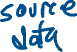 source
data